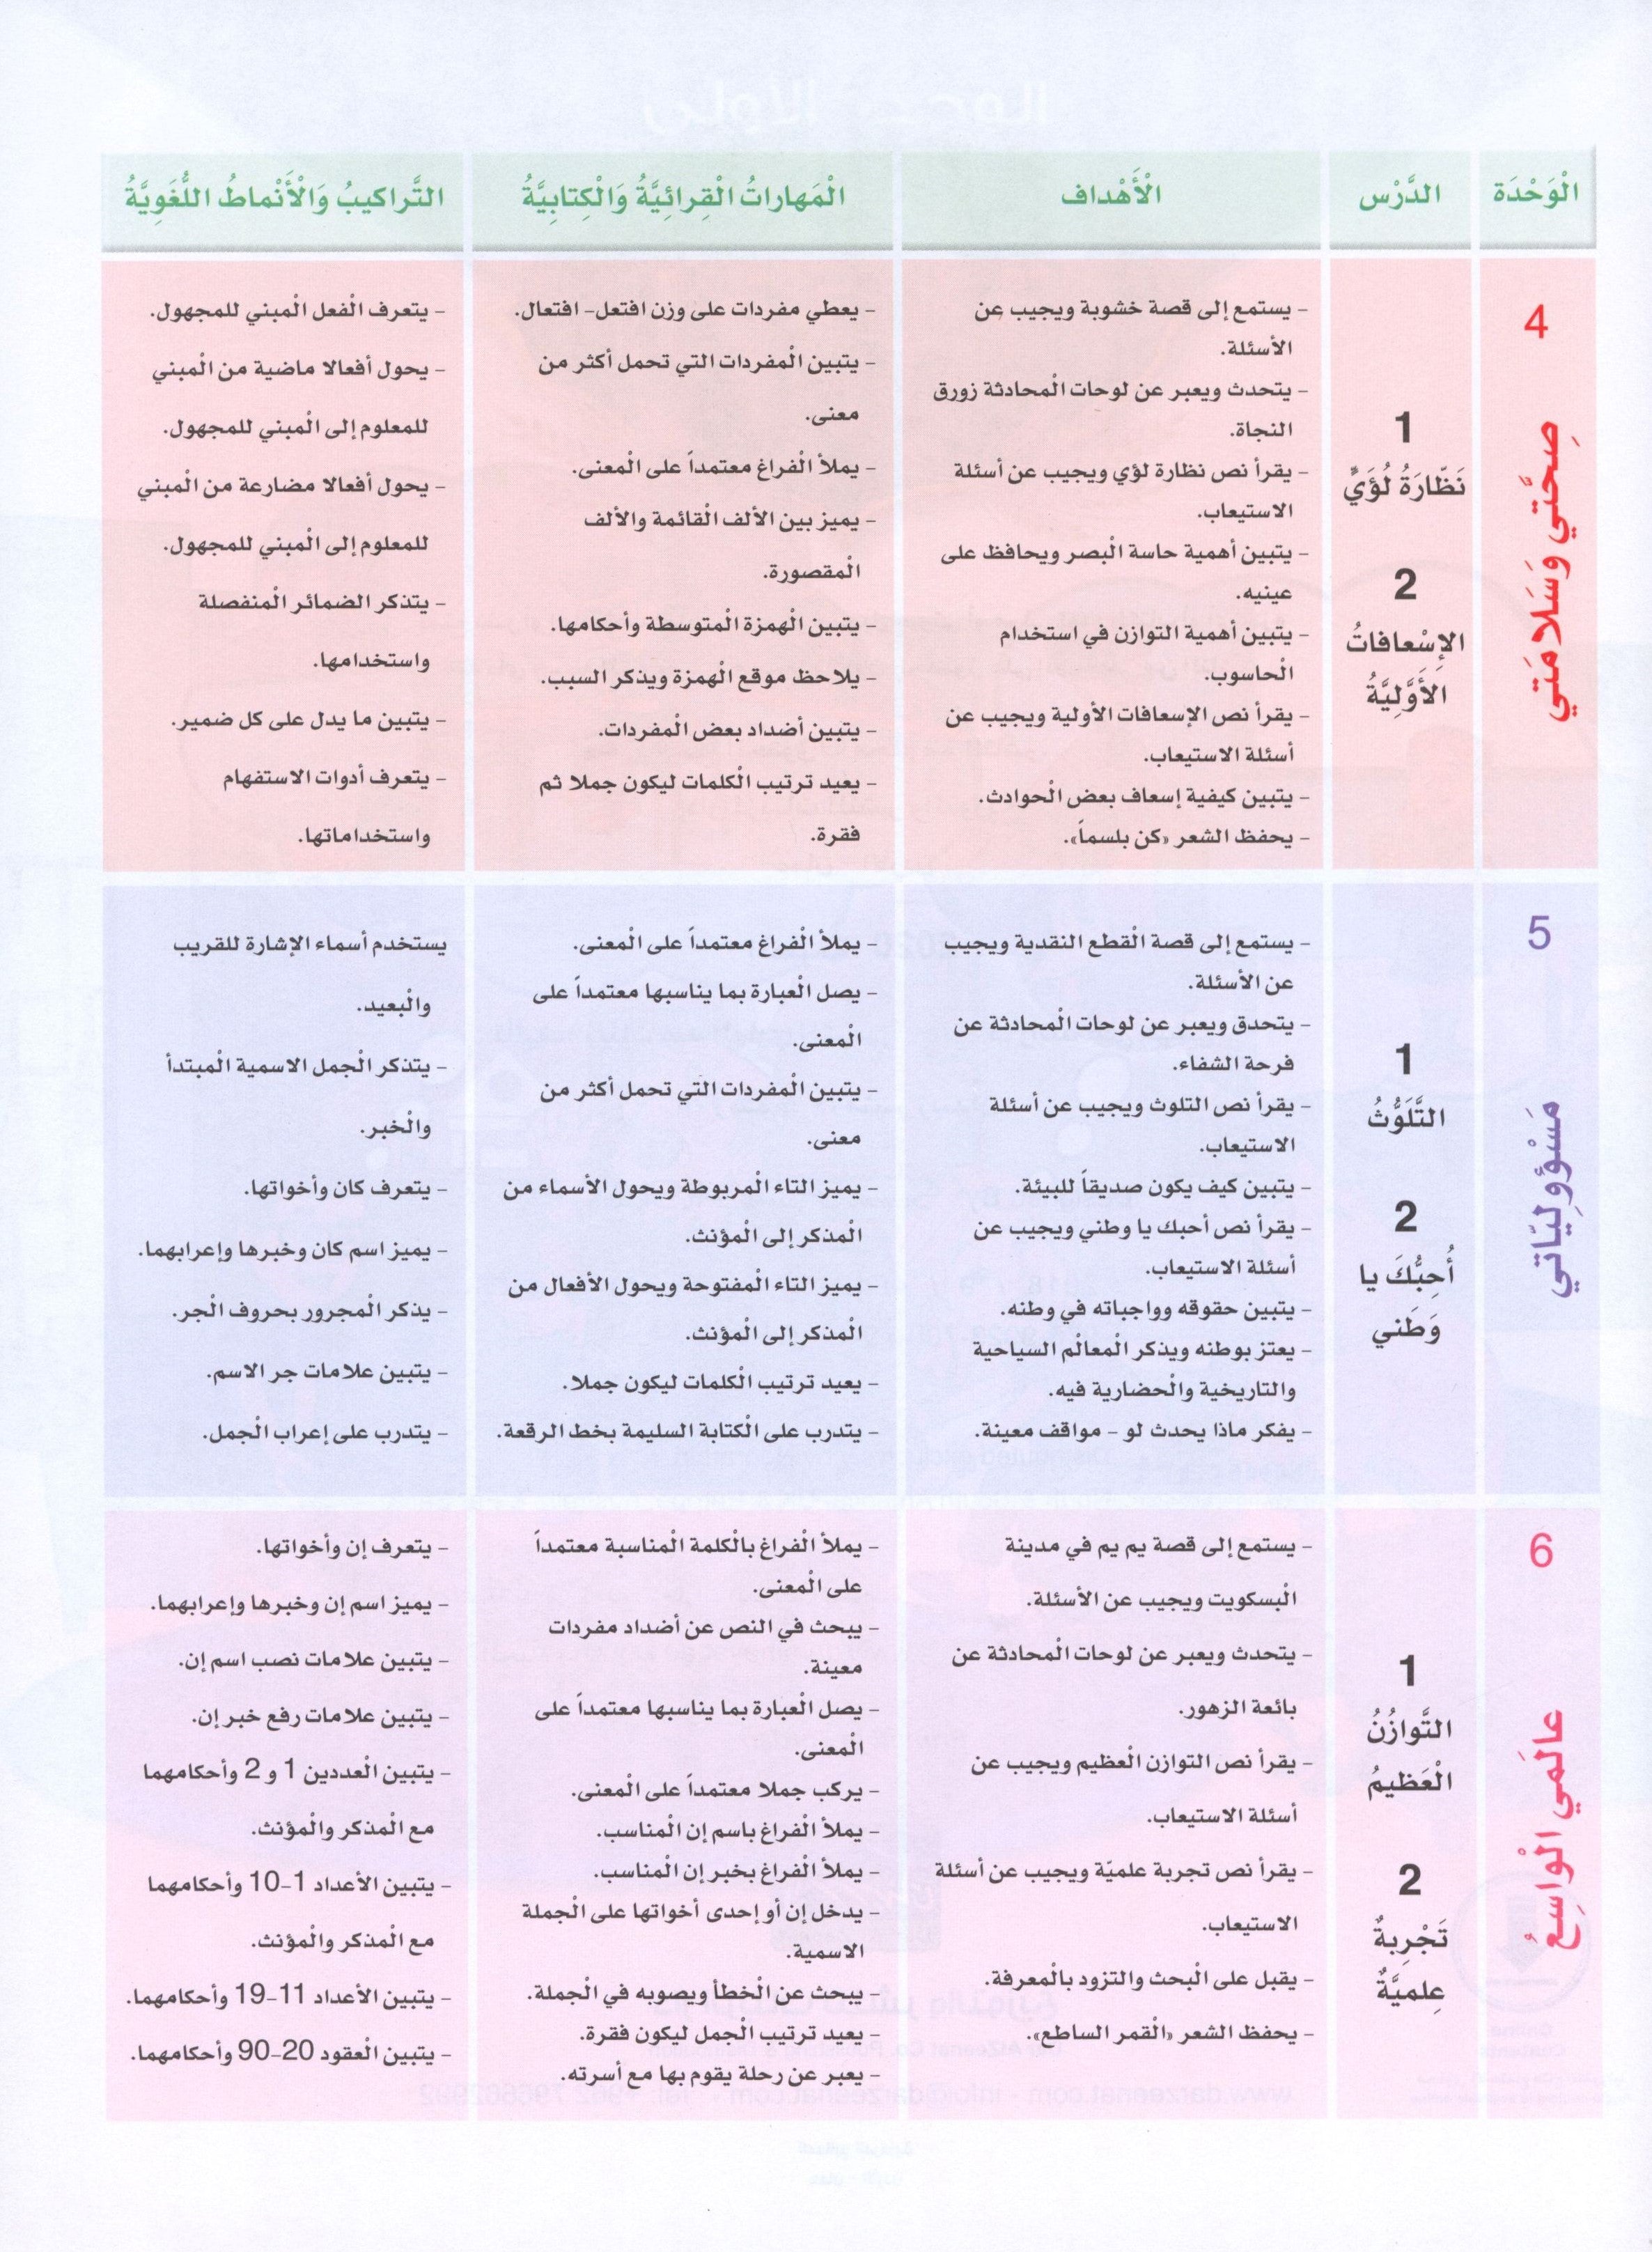 الْوَحْدَة
الدَّرْس
الْأَهْداف
الْمَهاراتُ الْقِرائِيَّةُ وَالْكِتابِيَّةُ
التَّراكيبُ وَالْأَنْماطُ اللُّغَوِيَّةُ
4
صِحَّتي وَسَلامَتي
1
نَظّارَةُ لُؤَيٍّ
2
الإِسْعافاتُ
الأَوَّلِيَّةُ
- يستمع إلى قصة خشوبة ويجيب عن
الأسئلة.
- يتحدث ويعبر عن لوحات الْمحادثة زورق
النجاة.
- يقرأ نص نظارة لؤي ويجيب عن أسئلة
الاستيعاب.
- يتبين أهمية حاسة الْبصر ويحافظ على
عينيه.
- يتبين أهمية التوازن في استخدام
الْحاسوب.
- يقرأ نص الإسعافات الأولية ويجيب عن
أسئلة الاستيعاب.
- يتبين كيفية إسعاف بعض الْحوادث.
- يحفظ الشعر «كن بلسماً».
- يعطي مفردات على وزن افتعل- افتعال.
- يتبين الْمفردات التي تحمل أكثر من
معنى.
- يملأ الْفراغ معتمداً على الْمعنى.
- يميز بين الألف الْقائمة والألف
الْمقصورة.
- يتبين الْهمزة الْمتوسطة وأحكامها.
- يلاحظ موقع الْهمزة ويذكر السبب.
- يتبين أضداد بعض الْمفردات.
- يعيد ترتيب الْكلمات ليكون جملا ثم
فقرة.
- يتعرف الْفعل الْمبني للمجهول.
- يحول أفعالا ماضية من الْمبني
للمعلوم إلى الْمبني للمجهول.
- يحول أفعالا مضارعة من الْمبني
للمعلوم إلى الْمبني للمجهول.
- يتذكر الضمائر الْمنفصلة
واستخدامها.
- يتبين ما يدل على كل ضمير.
- يتعرف أدوات الاستفهام
واستخداماتها.
5
مَسْؤولِيّاتي
1
التَّلَوُّثُ
2
أُحِبُّكَ يا
وَطَني
- يستمع إلى قصة الْقطع النقدية ويجيب
عن الأسئلة.
- يتحدق ويعبر عن لوحات الْمحادثة عن
فرحة الشفاء.
- يقرأ نص التلوث ويجيب عن أسئلة
الاستيعاب.
- يتبين كيف يكون صديقاً للبيئة.
- يقرأ نص أحبك يا وطني ويجيب عن
أسئلة الاستيعاب.
- يتبين حقوقه وواجباته في وطنه.
- يعتز بوطنه ويذكر الْمعالْم السياحية
والتاريخية والْحضارية فيه.
- يفكر ماذا يحدث لو - مواقف معينة.
- يملأ الْفراغ معتمداً على الْمعنى.
- يصل الْعبارة بما يناسبها معتمداً على
الْمعنى.
- يتبين الْمفردات التي تحمل أكثر من
معنى.
- يميز التاء الْمربوطة ويحول الأسماء من
الْمذكر إلى الْمؤنث.
- يميز التاء الْمفتوحة ويحول الأفعال من
الْمذكر إلى الْمؤنث.
- يعيد ترتيب الْكلمات ليكون جملا.
- يتدرب على الْكتابة السليمة بخط الرقعة.
يستخدم أسماء الإشارة للقريب
والْبعيد.
- يتذكر الْجمل الاسمية الْمبتدأ
والْخبر.
- يتعرف كان وأخواتها.
- يميز اسم كان وخبرها وإعرابهما.
- يذكر الْمجرور بحروف الْجر.
- يتبين علامات جر الاسم.
- يتدرب على إعراب الْجمل.
6
عالَمي الْواسِعُ
1
التَّوازُنُ
الْعَظيمُ
2
تَجْرِبةٌ
عِلميَّةٌ
- يستمع إلى قصة يم يم في مدينة
الْبسكويت ويجيب عن الأسئلة.
- يتحدث ويعبر عن لوحات الْمحادثة عن
بائعة الزهور.
- يقرأ نص التوازن الْعظيم ويجيب عن
أسئلة الاستيعاب.
- يقرأ نص تجربة علميّة ويجيب عن أسئلة
الاستيعاب.
- يقبل على الْبحث والتزود بالْمعرفة.
- يحفظ الشعر «الْقمر الساطع».
- يملأ الْفراغ بالْكلمة الْمناسبة معتمداً
على الْمعنى.
- يبحث في النص عن أضداد مفردات
معينة.
- يصل الْعبارة بما يناسبها معتمداً على
الْمعنى.
- يركب جملا معتمداً على الْمعنى.
- يملأ الْفراغ باسم إن الْمناسب.
- يملأ الْفراغ بخبر إن الْمناسب.
- يدخل إن أو إحدى أخواتها على الْجملة
الاسمية.
- يبحث عن الْخطأ ويصوبه في الْجملة.
- يعيد ترتيب الْجمل ليكون فقرة.
- يعبر عن رحلة يقوم بها مع أسرته.
- يتعرف إن وأخواتها.
- يميز اسم إن وخبرها وإعرابهما.
- يتبين علامات نصب اسم إن.
- يتبين علامات رفع خبر إن.
- يتبين الْعددين 1 و 2 وأحكامهما
مع الْمذكر والْمؤنث.
- يتبين الأعداد 1-10 وأحكامهما
مع الْمذكر والْمؤنث.
- يتبين الأعداد 11-19 وأحكامهما.
- يتبين الْعقود 20-90 وأحكامهما.